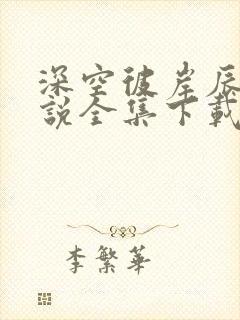 深空彼岸辰
說全集下載
李繁華